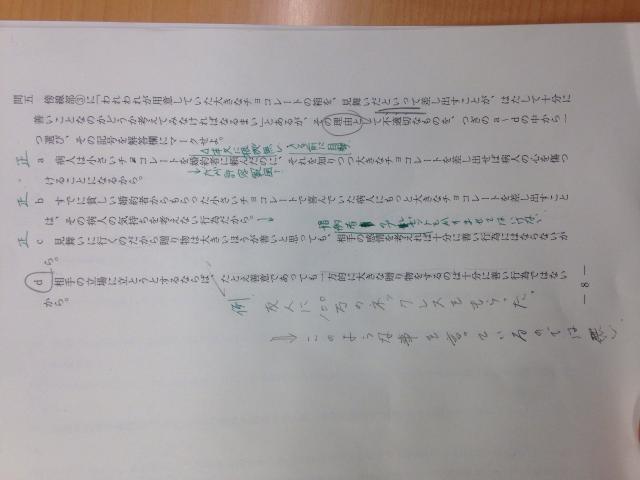 問五　傍線部③に「われわれが用意していた大きなチョコレートの箱を、見舞いだといって差し出すことが、はたして十分に
善いことなのかどうか考えてみなければなるまい」とあるが、その理由として不適切なものを、つぎのa～dの中から一
つ選び、その記号を解答欄にマークせよ。
正
a　病人は小さいチョコレートを婚約者に頼んだのに、それを知りつつ大きなチョコレートを差し出せば病人の心を傷つ
けることになるから。
正
b　すでに貧しい婚約者からもらった小さいチョコレートで喜んでいた病人にもっと大きなチョコレートを差し出すこと
は、その病人の気持ちを考えない行為だから。
正
c　見舞いに行くのだから贈り物は大きいほうが善いと思っても、相手の感情を考えれば十分に善い行為にはならないか
ら。
d　相手の立場に立とうとするならば、たとえ善意であっても一方的に大きな贈り物をするのは十分に善い行為ではない
から。
例　友人に100万のネックレスをもらった。
このような事を言っているのでは無い
― 8 ―